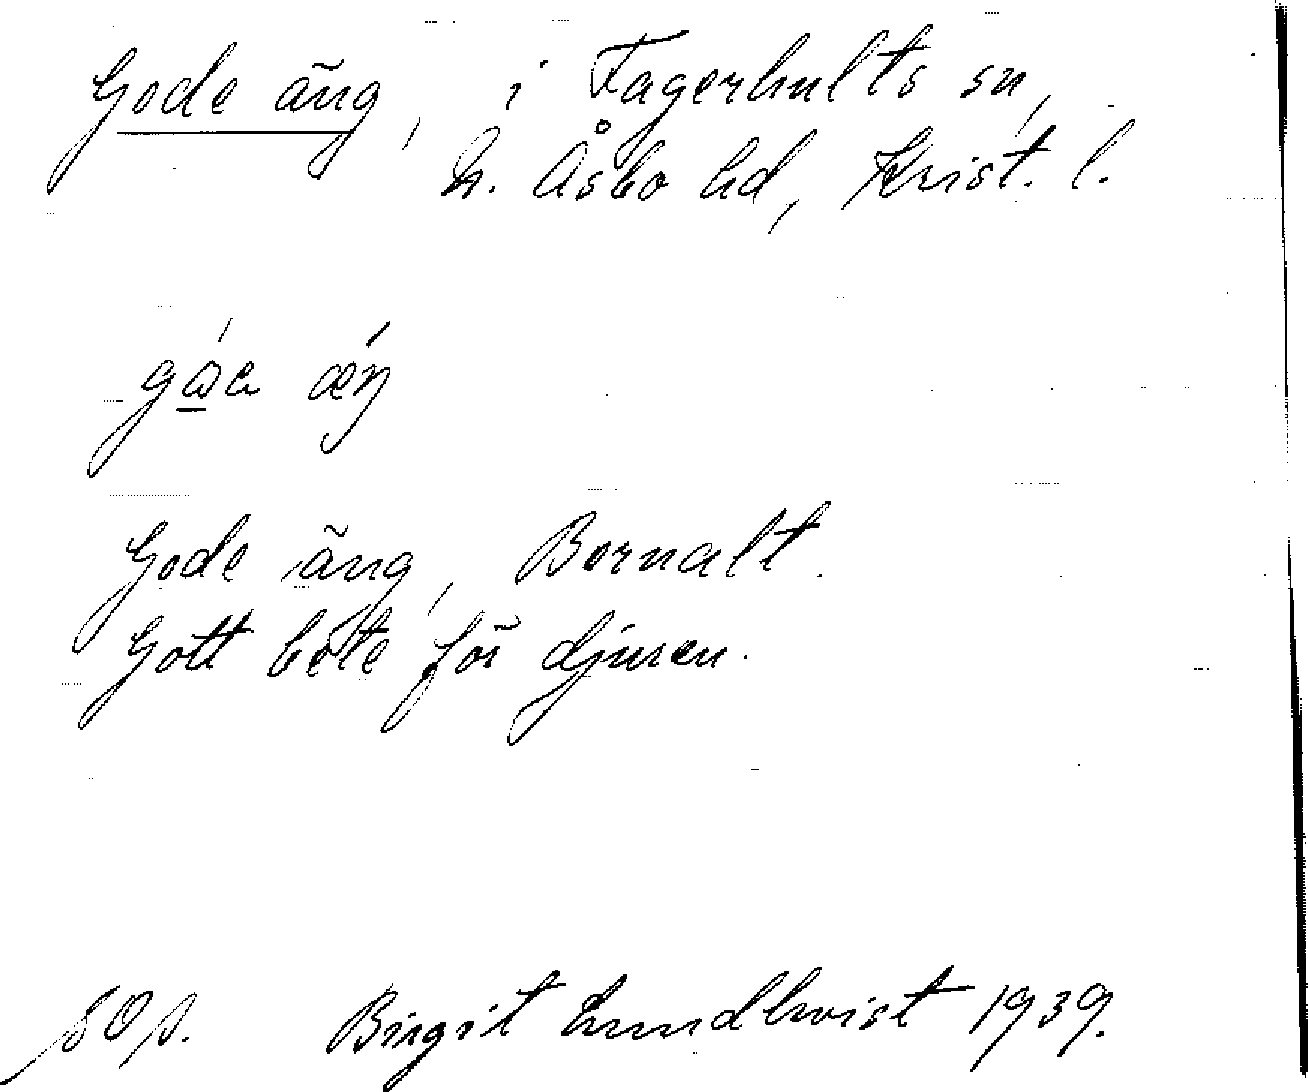 Gode äng, i Fagerhults sn,
N. Åsbo hd, Krist. l.
gɷ́a ǽŋ
Gode äng, Bornalt.
Gott bete för djuren.
SOp. Birgit Lundkvist 1939.